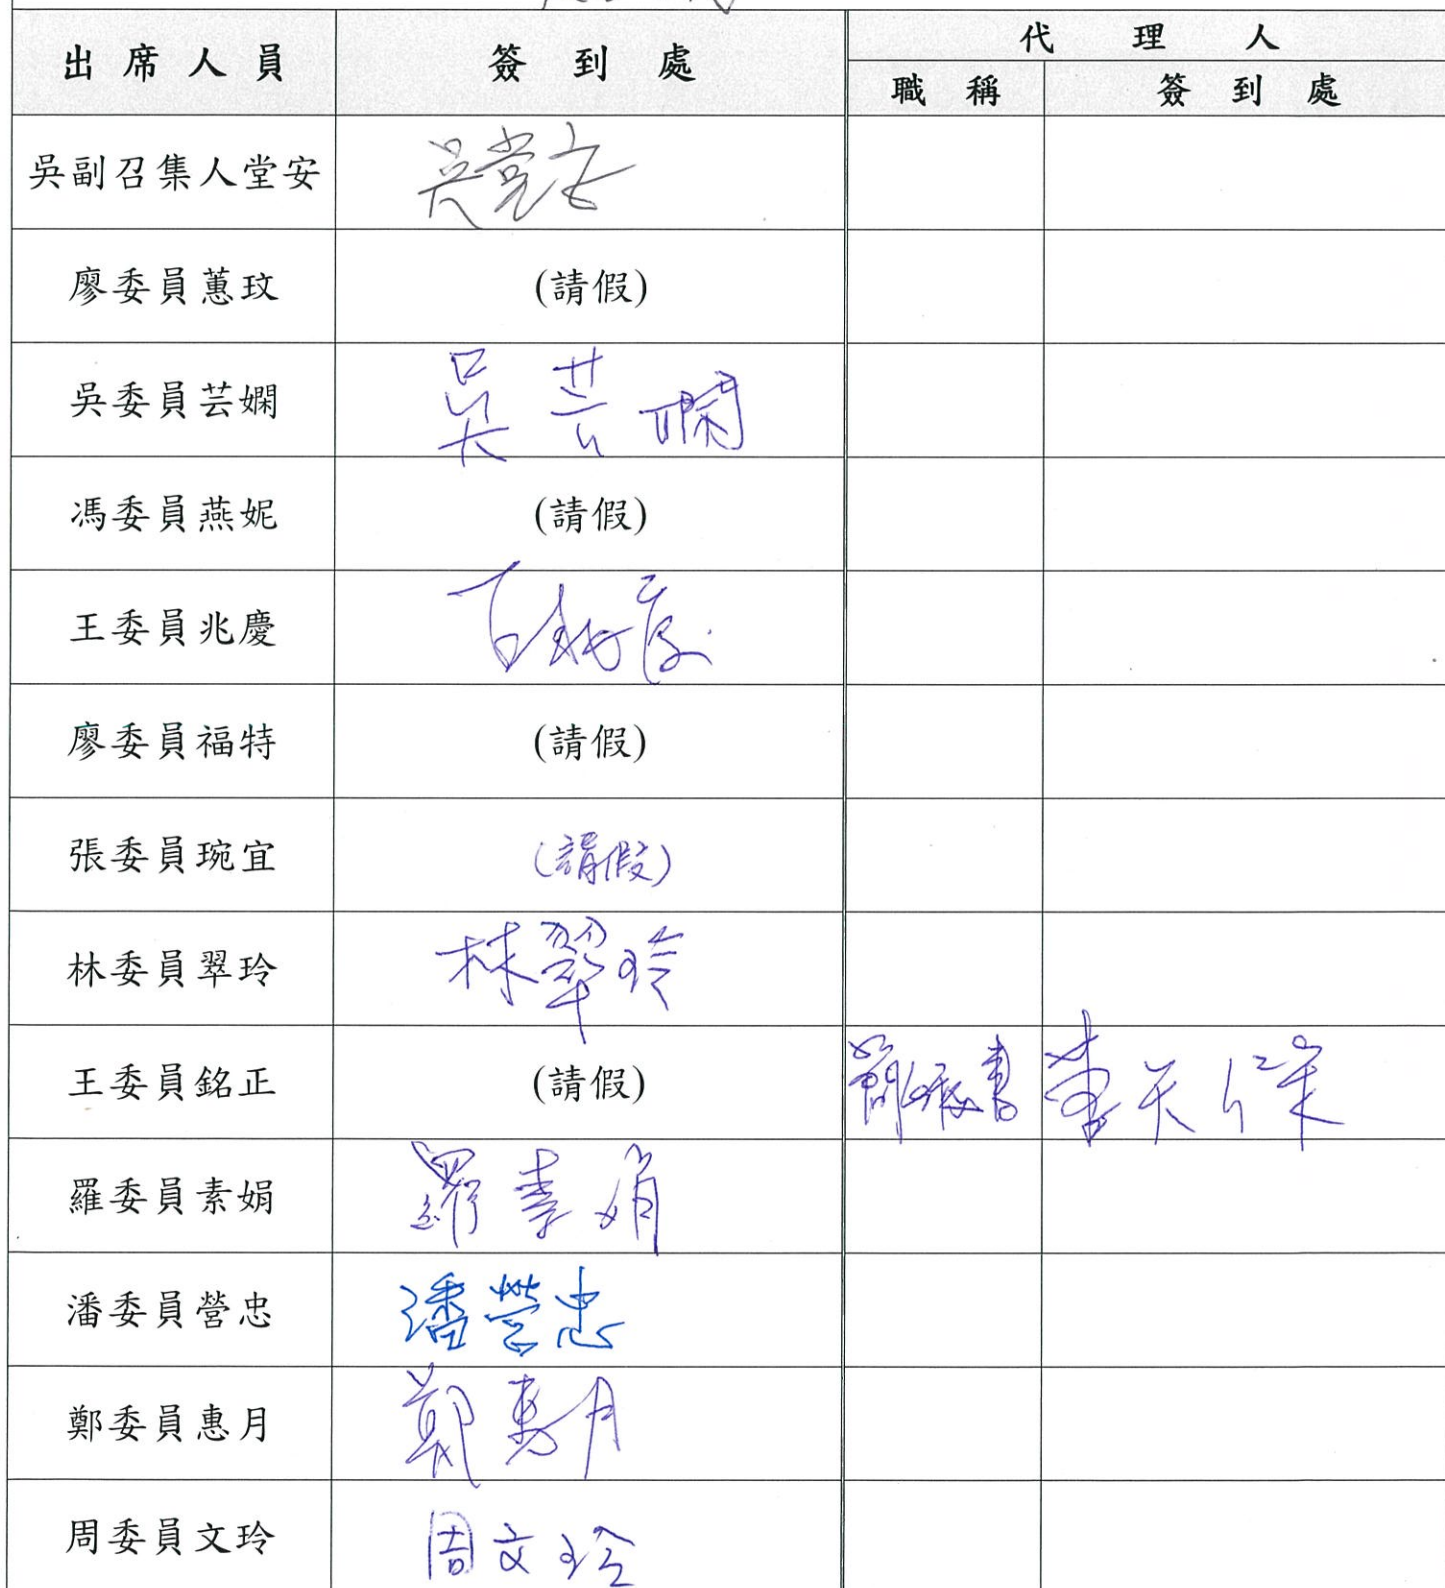 代理人
出席人員 簽到處 職稱 簽到處
吳副召集人堂安 吳堂安
廖委員蕙玟 (請假)
吳委員芸嫻 吳芸嫻
馮委員燕妮 (請假)
王委員兆慶
廖委員福特 (請假)
張委員琬宜 (請假)
林委員翠玲 林翠玲
王委員銘正 (請假)
羅委員素娟 羅素娟
潘委員營忠 潘營忠
鄭委員惠月 鄭惠月
周委員文玲 周文玲